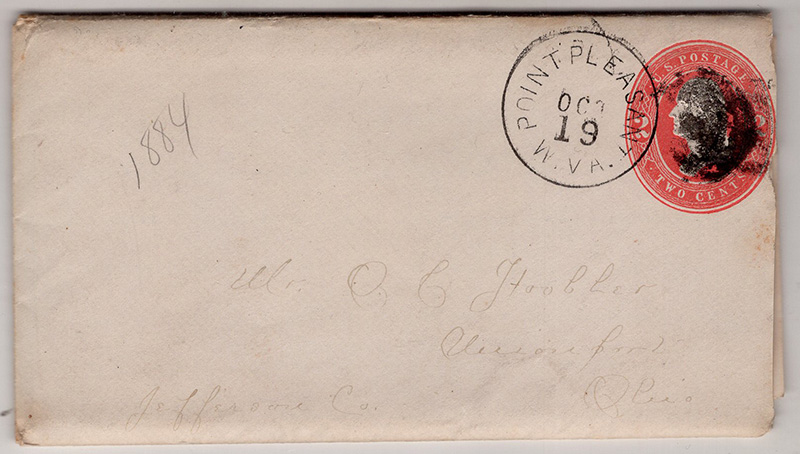 U.S. POSTAGE
TWO CENTS
POINT PLEASANT
OCT
19
W.VA.
1884
Mr. O C Hoobler
Unionport
Jefferson Co.
Ohio